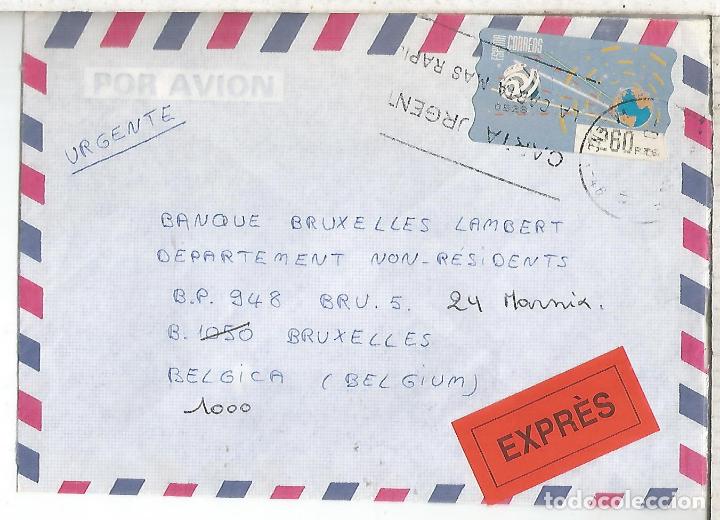 POR AVION
URGENTE
CORREOS
260 PTS
CARTA URGENTE
LA CARTA MAS RAPI
BANQUE BRUXELLES LAMBERT
DÉPARTEMENT NON-RÉSIDENTS
B.P. 948 BRU. 5. 24 Marnix.
B. 1050 BRUXELLES
BELGICA (BELGIUM)
1000
EXPRÈS
todocoleccion